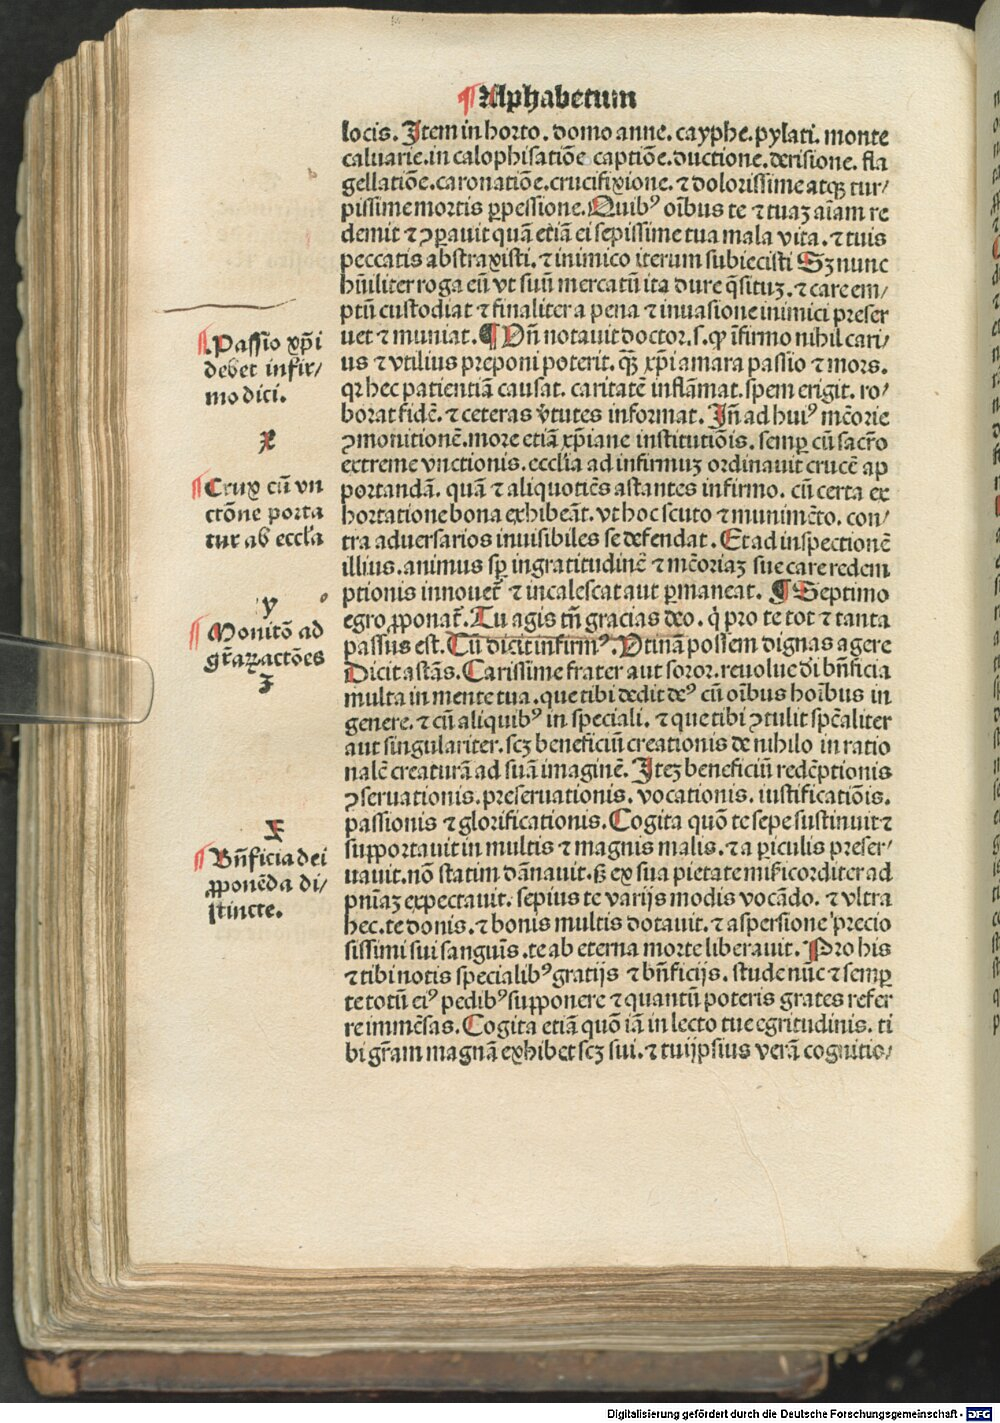 ¶Alphabetum
locis. Item in horto. domo anne. cayphe. pylati. monte
caluarie. in calophisatiōe captiōe. ductione. derisione. fla
gellatiōe. caronatiōe. crucifixione. ⁊ dolorissime atqꝫ tur/
pissime mortis ꝑpessione. Quibꝰ oībus te ⁊ tuaꝫ aīam re
demit ⁊ ꝯparauit quā etiā ei sepissime tua mala vita. ⁊ tuis
peccatis abstraxisti. ⁊ inimico iterum subiecisti Sꝫ nunc
hūiliter roga eū vt suū mercatū ita dure q̄situꝫ. ⁊ care em/
ptū custodiat ⁊ finaliter a pena ⁊ inuasione inimici preser
uet ⁊ muniat. ¶ Vn̄ notauit doctor. s. ꝙ īfirmo nihil cari/
us ⁊ vtilius preponi poterit. qꝫ̄ xp̄i amara passio ⁊ mors.
qꝛ hec patientiā causat. caritatē inflāmat. spem erigit. ro/
borat fidē. ⁊ ceteras v̄tutes informat. In̄ ad huiꝰ mēorie
ꝯmonitionē. more etiā xp̄iane institutiōis. semꝑ cū sacr̄o
extreme vnctionis. eccl̄ia ad infirmuꝫ ordinauit crucē ap
portandā. quā ⁊ aliquotiēs astantes infirmo. cū certa ex
hortatione bona exhibeāt. vt hoc scuto ⁊ munimēto. con/
tra aduersarios inuisibiles se defendat. Et ad inspectionē
illius. animus sꝑ ingratitudinē ⁊ mēoriaꝫ sue care redem
ptionis innouet̄ ⁊ incalescat aut ꝑmaneat. ¶ Septimo
egro ꝓponat̄. Tu agis tn̄ gracias deo. q̇ pro te tot ⁊ tanta
passus est. Tūc dicit infirmꝰ. Vtinā possem dignas agere
Dicit astās. Carissime frater aut soror. reuolue di bn̄ficia
multa in mente tua. que tibi dedit deꝰ cū oībus hoībus in
genere. ⁊ cū aliquibꝰ in speciali. ⁊ que tibi ꝯtulit spēaliter
aut singulariter. scꝫ beneficiū creationis de nihilo in ratio
nalē creaturā ad suā imaginē. Iteꝫ beneficiū redēptionis
ꝯseruationis. preseruationis. vocationis. iustificatiōis.
passionis ⁊ glorificationis. Cogita quō te sepe sustinuit ⁊
supportauit in multis ⁊ magnis malis. ⁊ a ꝑiculis preser/
uauit. nō statim dānauit. sꝫ ex sua pietate mīficorditer ad
pn̄iaꝫ expectauit. sepius te varijs modis vocādo. ⁊ vltra
hec. te donis. ⁊ bonis multis dotauit. ⁊ aspersione precio
sissimi sui sanguīs. te ab eterna morte liberauit. Pro his
⁊ tibi notis specialibꝰ gratijs ⁊ bn̄ficijs. stude nūc ⁊ semꝑ
te totū eiꝰ pedibꝰ supponere ⁊ quantū poteris grates refer
re immēsas. Cogita etiā quō iā in lecto tue egritudinis. ti
bi gr̄am magnā exhibet scꝫ sui. ⁊ tuijpsius verā cognitio/
¶.Passio xp̄i
debet infir/
mo dici.
x
¶ Crux cū vn
ctōne porta
tur ab eccl̄a
y
¶ Monitō ad
gr̄aꝝ actōes
ꝫ
¶ Bn̄ficia dei
ꝓponēda di/
stincte.
Digitalisierung gefördert durch die Deutsche Forschungsgemeinschaft - DFG